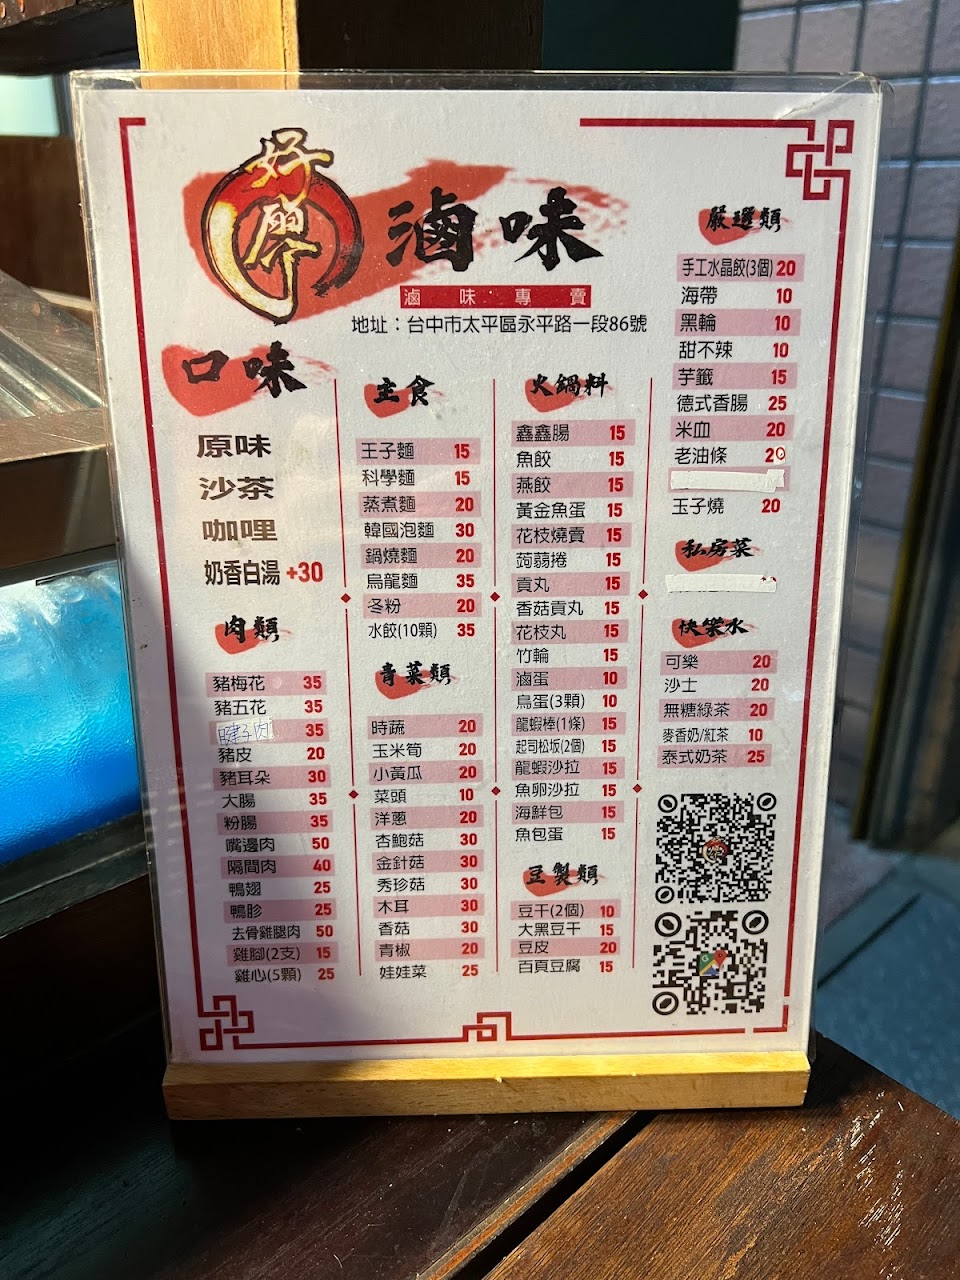 好廖
滷味
滷味專賣
地址：台中市太平區永平路一段86號
口味
原味
沙茶
咖哩
奶香白湯 +30
肉類
豬梅花 35
豬五花 35
腱子肉 35
豬皮 20
豬耳朵 30
大腸 35
粉腸 35
嘴邊肉 50
隔間肉 40
鴨翅 25
鴨胗 25
去骨雞腿肉 50
雞腳(2支) 15
雞心(5顆) 25
主食
王子麵 15
科學麵 15
蒸煮麵 20
韓國泡麵 30
鍋燒麵 20
烏龍麵 35
冬粉 20
水餃(10顆) 35
青菜類
時蔬 20
玉米筍 20
小黃瓜 20
菜頭 10
洋蔥 20
杏鮑菇 30
金針菇 30
秀珍菇 30
木耳 30
香菇 30
青椒 20
娃娃菜 25
火鍋料
鑫鑫腸 15
魚餃 15
燕餃 15
黃金魚蛋 15
花枝燒賣 15
蒟蒻捲 15
貢丸 15
香菇貢丸 15
花枝丸 15
竹輪 15
滷蛋 10
鳥蛋(3顆) 10
龍蝦棒(1條) 15
起司松坂(2個) 15
龍蝦沙拉 15
魚卵沙拉 15
海鮮包 15
魚包蛋 15
豆製類
豆干(2個) 10
大黑豆干 15
豆皮 20
百頁豆腐 15
嚴選類
手工水晶餃(3個) 20
海帶 10
黑輪 10
甜不辣 10
芋籤 15
德式香腸 25
米血 20
老油條 20
玉子燒 20
私房菜
快樂水
可樂 20
沙士 20
無糖綠茶 20
麥香奶/紅茶 10
泰式奶茶 25